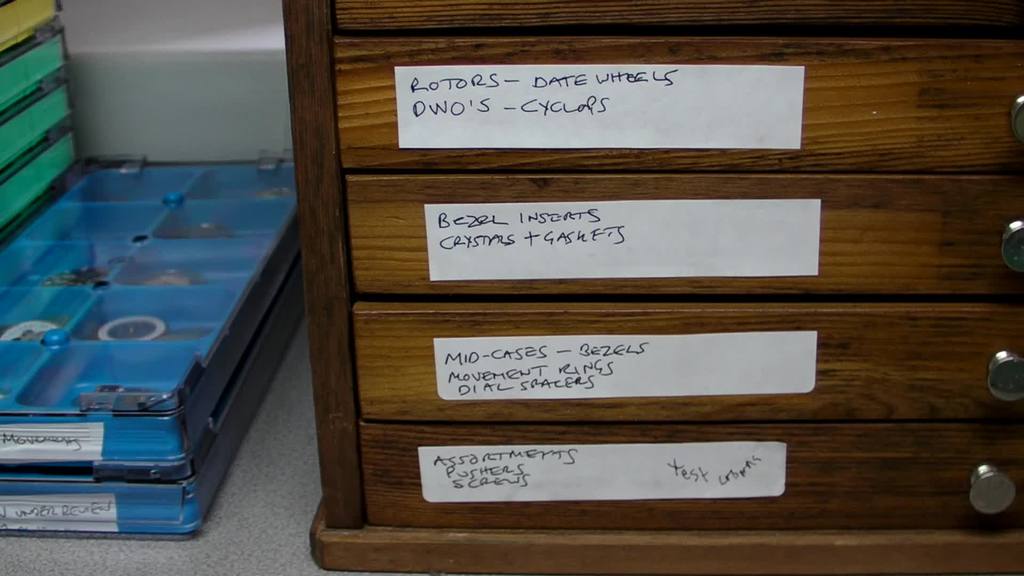 ROTORS - DATE WHEELS
DWO'S - CYCLOPS
BEZEL INSERTS
CRYSTALS + GASKETS
MID-CASES - BEZELS
MOVEMENT RINGS
DIAL SPACERS
ASSORTMENTS
PUSHERS
SCREWS
Test
MOVEMENTS
UNDER REVIEW